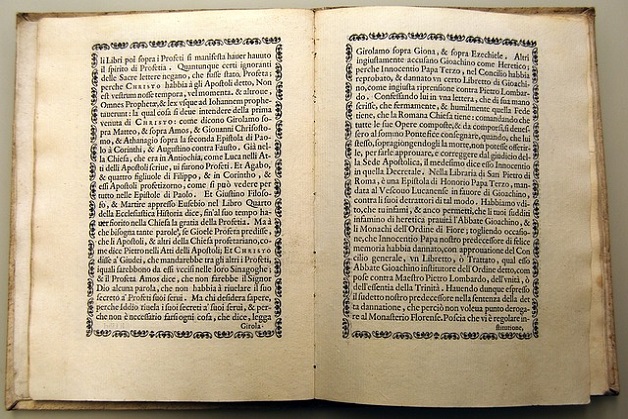 li Libri poi sopra i Profeti si manifesta hauer hauuto
il spirito di Profetia. Quantunque certi ignoranti
delle Sacre lettere negano, che fusse stato, Profeta;
perche CHRISTO habbia à gli Apostoli detto, Non
est vestrum nosse tempora, vel momenta. & altroue,
Omnes Prophetæ, & lex vsque ad Iohannem prophe-
tauerunt: la qual cosa si deue intendere della prima
venuta di CHRISTO: come dicono Girolamo so-
pra Matteo, & sopra Amos, & Giouanni Chrisosto-
mo, & Athanagio sopra la seconda Epistola di Pao-
lo à Corinthi, & Augustino contro Fausto. Già nel-
la Chiesa, che era in Antiochia, come Luca nelli At-
ti delli Apostoli scriue, vi furono Profeti. Et Agabo,
& quattro figliuole di Filippo, & in Corintho, &
essi Apostoli profetizorno, come si può vedere per
tutto nelle Epistole di Paolo. Et Giustino Filoso-
fo, & Martire appresso Eusebio nel Libro Quarto
della Ecclesiastica Historia dice, fin'al suo tempo fia-
uer sorito nella Chiesa la gratia della Profetia. Ma à
che bisogna tante parole, se Gioele Profeta predisse,
che li Apostoli, & altri della Chiesa profetariano, co-
me dice Pietro nelli Atti delli Apostoli; Et CHRISTO
disse a' Giudei, che mandarebbe tra gli altri i Profeti,
iquali sarebbono da essi vccisi nelle loro Sinagoghe;
& il Profeta Amos dice, che non farebbe il Signor
Dio alcuna parola, che non habbia à riuelare il suo
secreto à' Profeti suoi serui. Ma chi desidera sapere,
perche Iddio riuela i suoi secreti a' suoi serui, & per-
che non è necessario farsi ogni cosa, che dice, legga
Girola-
Girolamo sopra Giona, & sopra Ezechiele. Altri
ingiustamente accusano Gioachino come Heretico;
perche Innocentio Papa Terzo, nel Concilio habbia
reprobato, & dannato vn certo Libretto di Gioachi-
no, come ingiusta riprensione contra Pietro Lombar-
do. Confessando lui in vna lettera, che di sua mano
scrisse, che fermamente, & humilmente quella Fede
tiene, che la Romana Chiesa tiene: comandando che
tutte le sue Opere composte, & da comporsi, si dones-
sero al sommo Pontefice consegnare, quando, che lui
stesso, sopragiongendogli la morte, non potesse offerir-
le, per farle approuare, e correggere dal giudicio del-
la Sede Apostolica, il medesimo dice esso Innocentio
in quella Decretale. Nella Libraria di San Pietro di
Roma, è vna Epistola di Honorio Papa Terzo, man-
data al Vescouo Lucanense in fauore di Gioachino,
contra li suoi detrattori di tal modo. Habbiamo vdi-
to, che tu infami, & anco permetti, che li tuoi sudditi
infamino di heretica prauità l'Abbate Gioachino, &
li Monachi dell'Ordine di Fiore; togliendo occasio-
ne, che Innocentio Papa nostro predecessore di felice
memoria habbia dannato, con approuatione del Con
cilio generale, vn Libretto, ò Trattato, qual esso
Abbate Gioachino institutore dell'Ordine detto, com
pose contra Maestro Pietro Lombardo, dell'vnità, ò
dell'essentia della Trinità. Hauendo dunque espresso
il sudetto nostro predecessore nella sentenza della det
ta dannatione, che perciò non voleua punto deroga-
re al Monasterio Florense. Poscia che vi è regolare in-
stitutione,